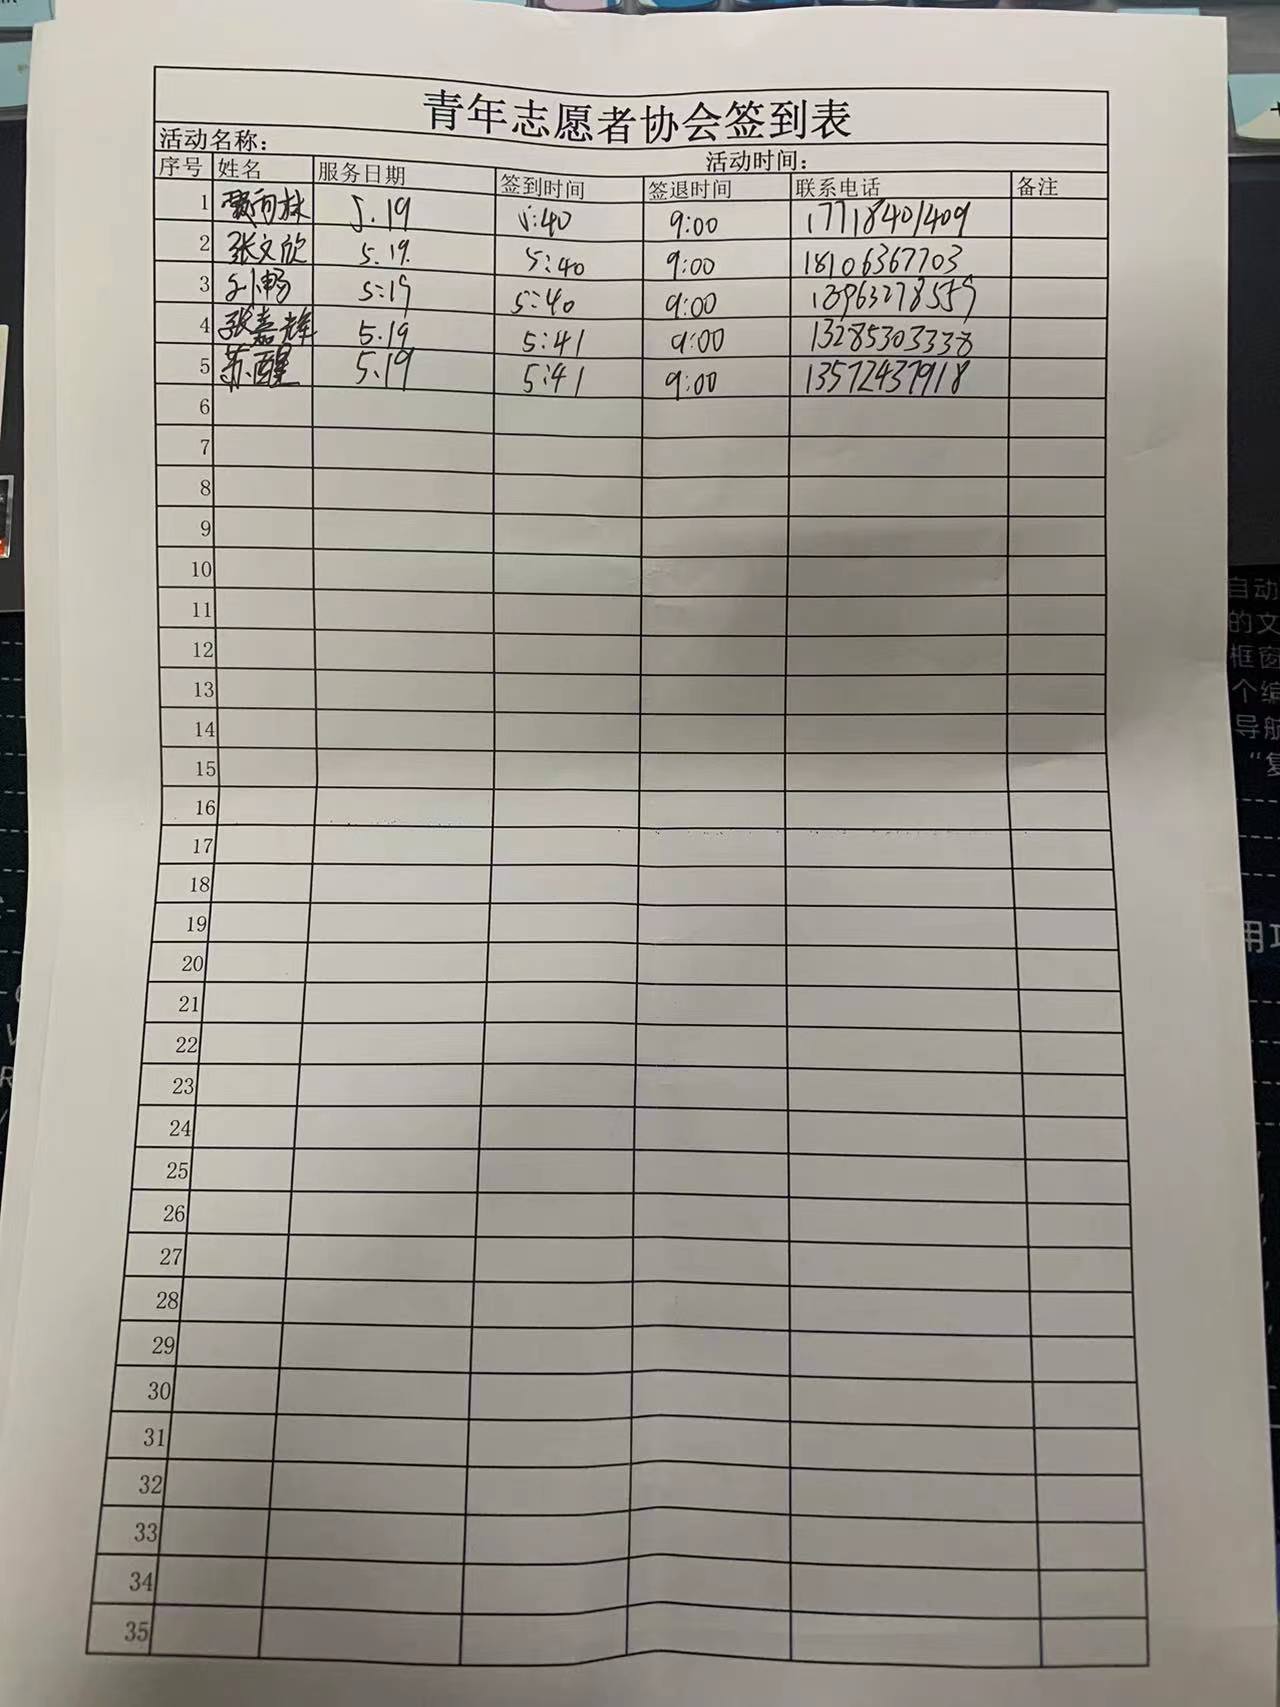 青年志愿者协会签到表
活动名称： 活动时间：
序号 姓名 服务日期 签到时间 签退时间 联系电话 备注
1 5.19 5:40 9:00 17718401409
2 张文欣 5.19. 5:40 9:00 18106367703
3 孙畅 5:19 5:40 9:00 13963278559
4 张嘉辉 5.19 5:41 9:00 13285303338
5 苏醒 5.19 5:41 9:00 13572437918
6
7
8
9
10
11
12
13
14
15
16
17
18
19
20
21
22
23
24
25
26
27
28
29
30
31
32
33
34
35
自动
的文
框窗
个编
导航
用项